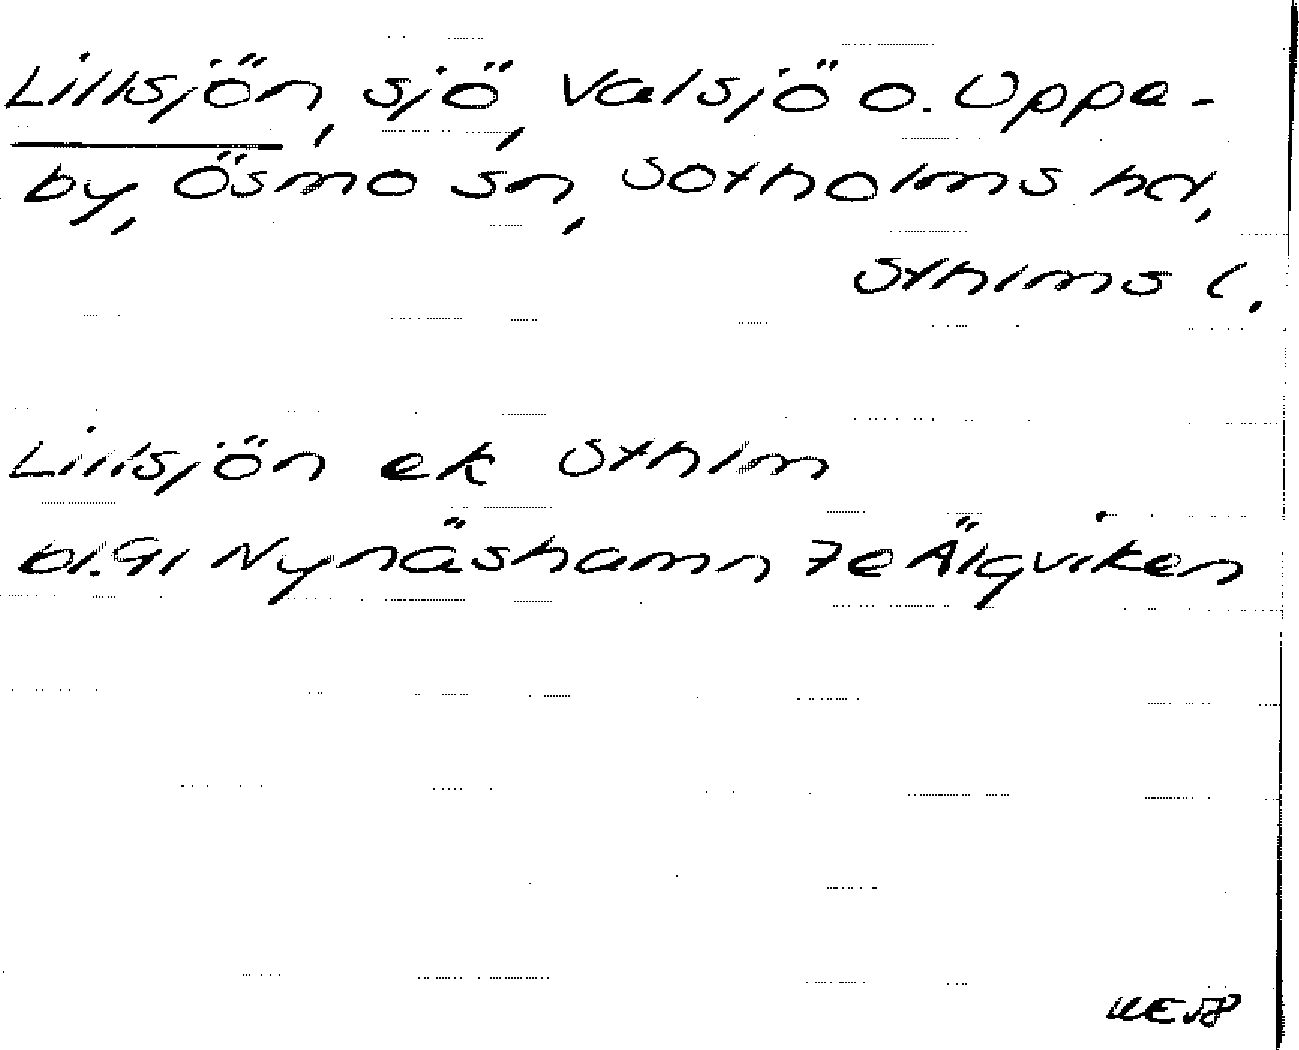 Lillsjön, sjö, Valsjö o. Uppe-
by, Ösmo sn, Sotholms hd,
Sthlms l.
Lillsjön ek Sthlm
bl. 91 Nynäshamn 7e Älgviken